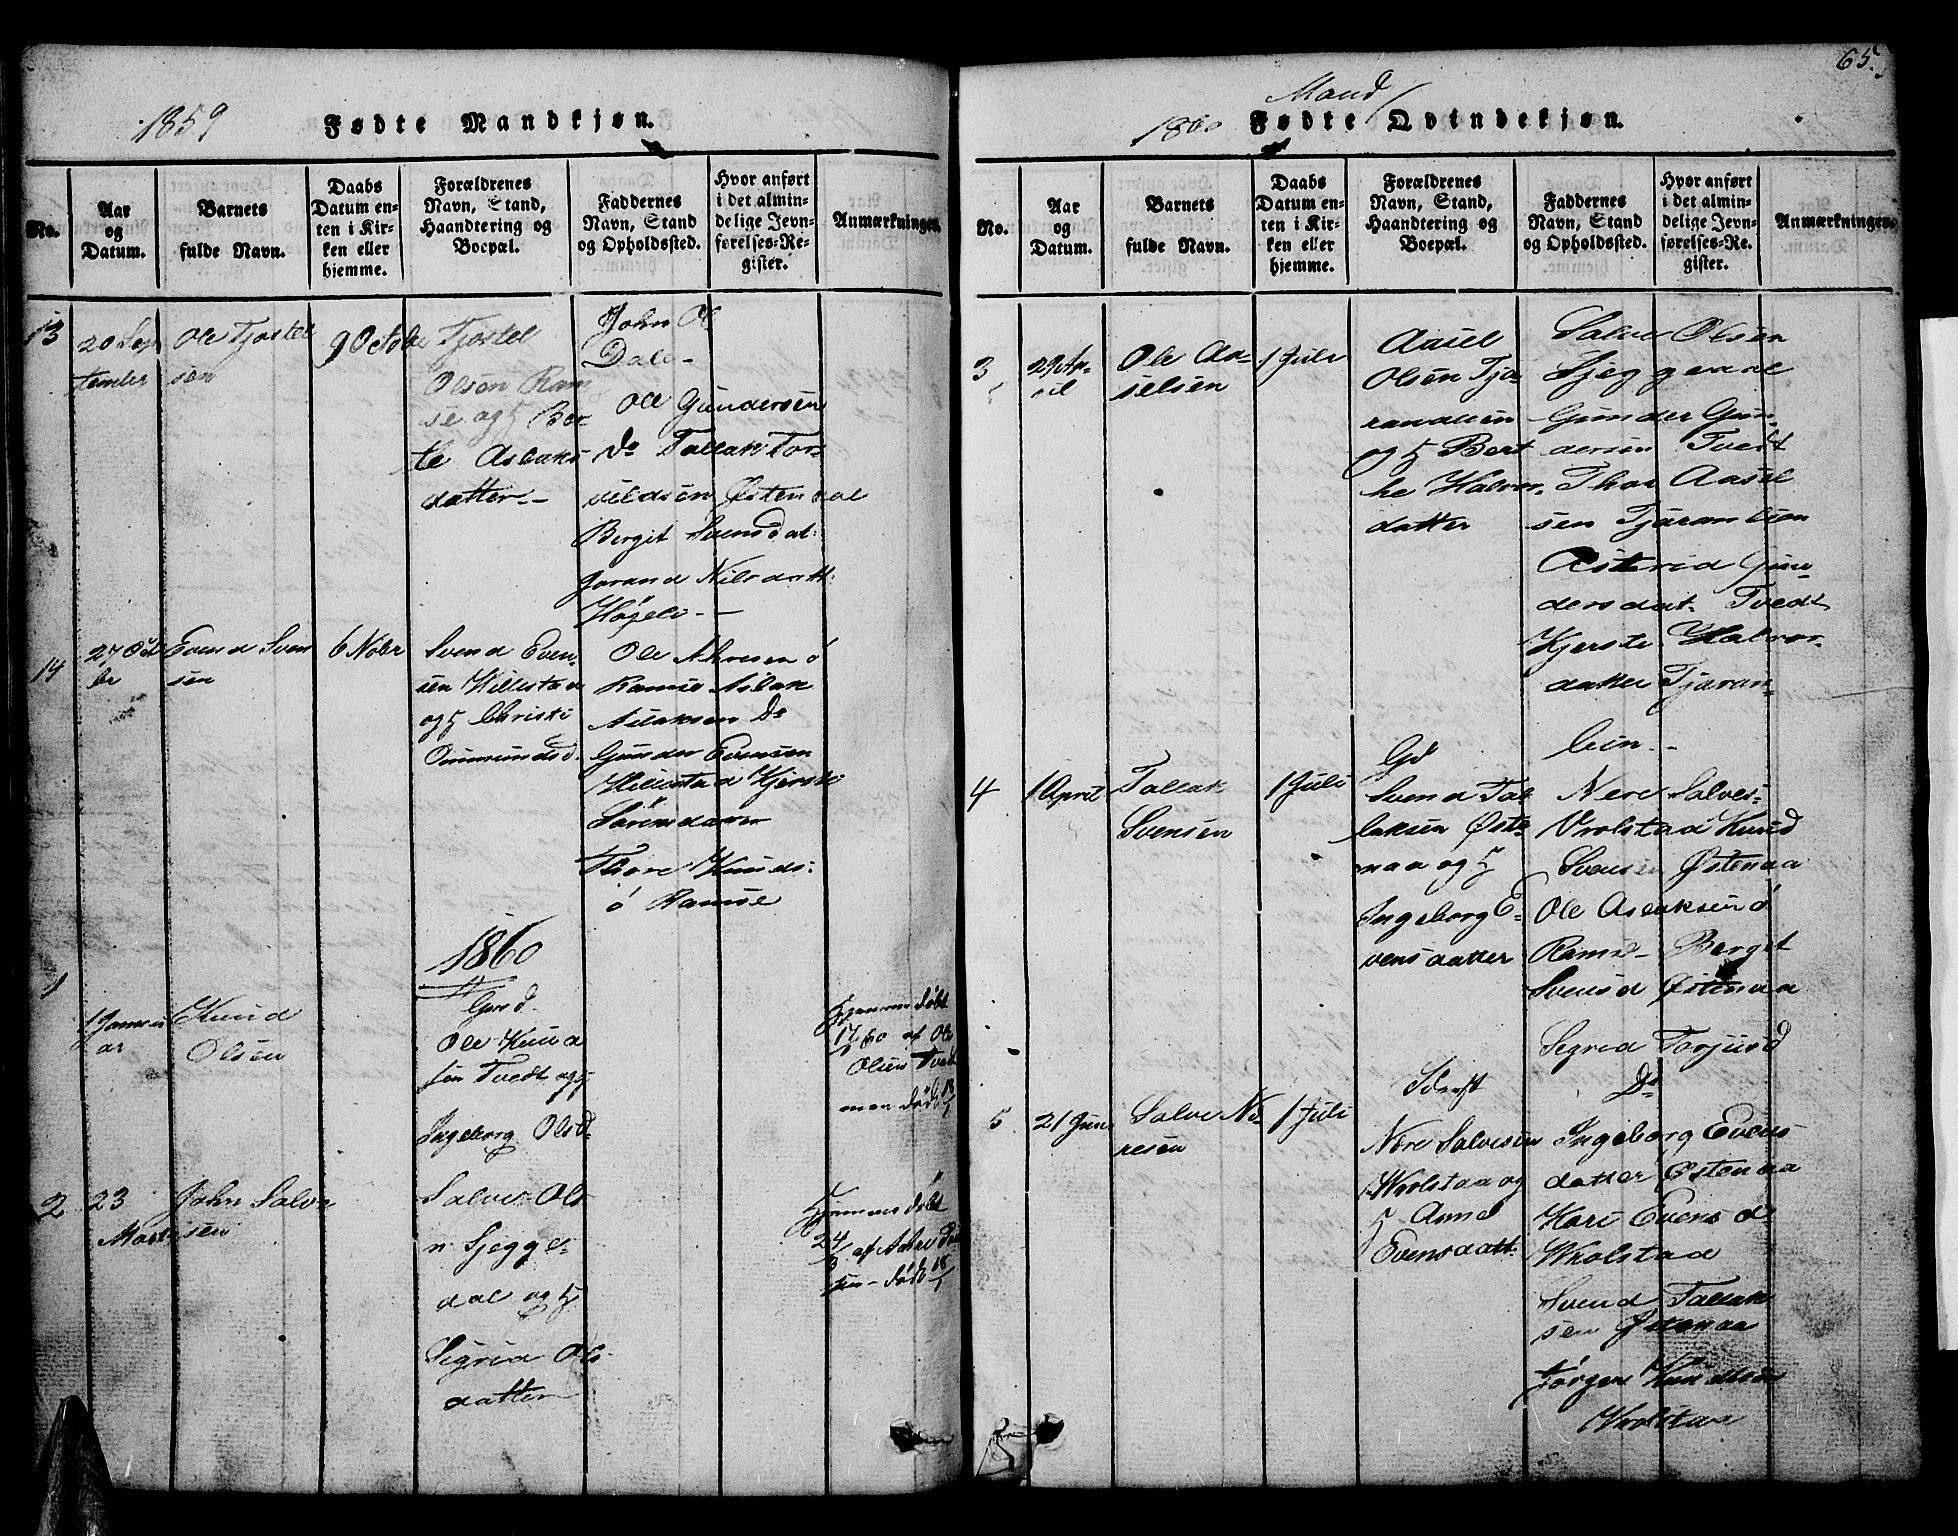 1859
Fødte Mandkjøn.
No.
Aar
og
Datum.
Barnets
fulde Navn.
Daabs
Datum en-
ten i Kir-
ken eller
hjemme.
Forældrenes
Navn, Stand,
Haandtering og
Boepæl.
Faddernes
Navn, Stand
og Opholdssted.
Hvor anført
i det almin-
delige Jevn-
førelses-Re-
gister.
Anmærkninger.
13
20 Sep
tember
Ole Tjostel
sen
9 Octobr
Tjostel
Olsen Ram
se og h Ber
te Aslaks
datter
John Ol
Dale
Ole Gundersen
Do Tallak Tor-
vildsen Østenaae
Bergit Svensdat.
Jorand Nilsdatt.
Høgeli
14
27 Oct
br
Evend Sven
sen
6 Nobr
Svend Even
sen Hillestad
og h Christi
Ommundsd.
Ole
Ramse Aslak
Aslaksen Do
Gunder Evensen
Hillestad Kjerste
Sørensdatter
Thore Knuds.
ö Ramse
1860
1
1 Janu
ar
Knud
Olsen
Grd.
Ole Knud
sen Tvedt og h
Ingeborg Olsd.
Hjemmedøbt
17/ 60 af Ole
Olsen Tvedt
men døde 18/1
2
23
Marts
John Salve
sen
Salve Ols
n Sjegge-
dal og h
Sigrid Ols
datter
Hjemmedøbt
24/3 af
døde 18/1
65.
1860
Mand
Fødte Qvindekjøn.
No.
Aar
og
Datum.
Barnets
fulde Navn.
Daabs
Datum en-
ten i Kir-
ken eller
hjemme.
Forældrenes
Navn, Stand,
Haandtering og
Boepæl.
Faddernes
Navn, Stand
og Opholdssted.
Hvor anført
i det almin-
delige Jevn-
førelses-Re-
gister.
Anmærkninger.
3
29 Ap-
ril
Ole Aa-
selsen
1 Juli
Aasel
Olsen Tja-
randlien
og h Bert
he Halvor
datter
Salve Olsen
Sjeggedal
Gunder Gun-
dersen Tvedt
Thor Aasel
sen Tjaranlien
Asterid Gun-
dersdat. Tvedt
Kjerste Halvor-
datter Tjaran-
lien
4
1 April
Tallak
Svensen
1 Juli
Gd
Svend Tal
laksen Øste
naa og h
Ingeborg E-
vensdatter
Nere Salves-
Vrolstad Knud
Svensen Østenaa
Ole Aslaksen ö
Ramse Berget
Svensd Østenaa
Sigrid Torjusd
Do
5
21 Juni
Salve Ne-
resen
1 Juli
Nere Salvesen
Wrolstad og
h Anne
Evensdatt.
Ingeborg Evens
datter Østenaa
Kari Evensd.
Wrolstad
Svend Tallak
sen Østenaa
Jørgen Knudtsen
Wrolstad